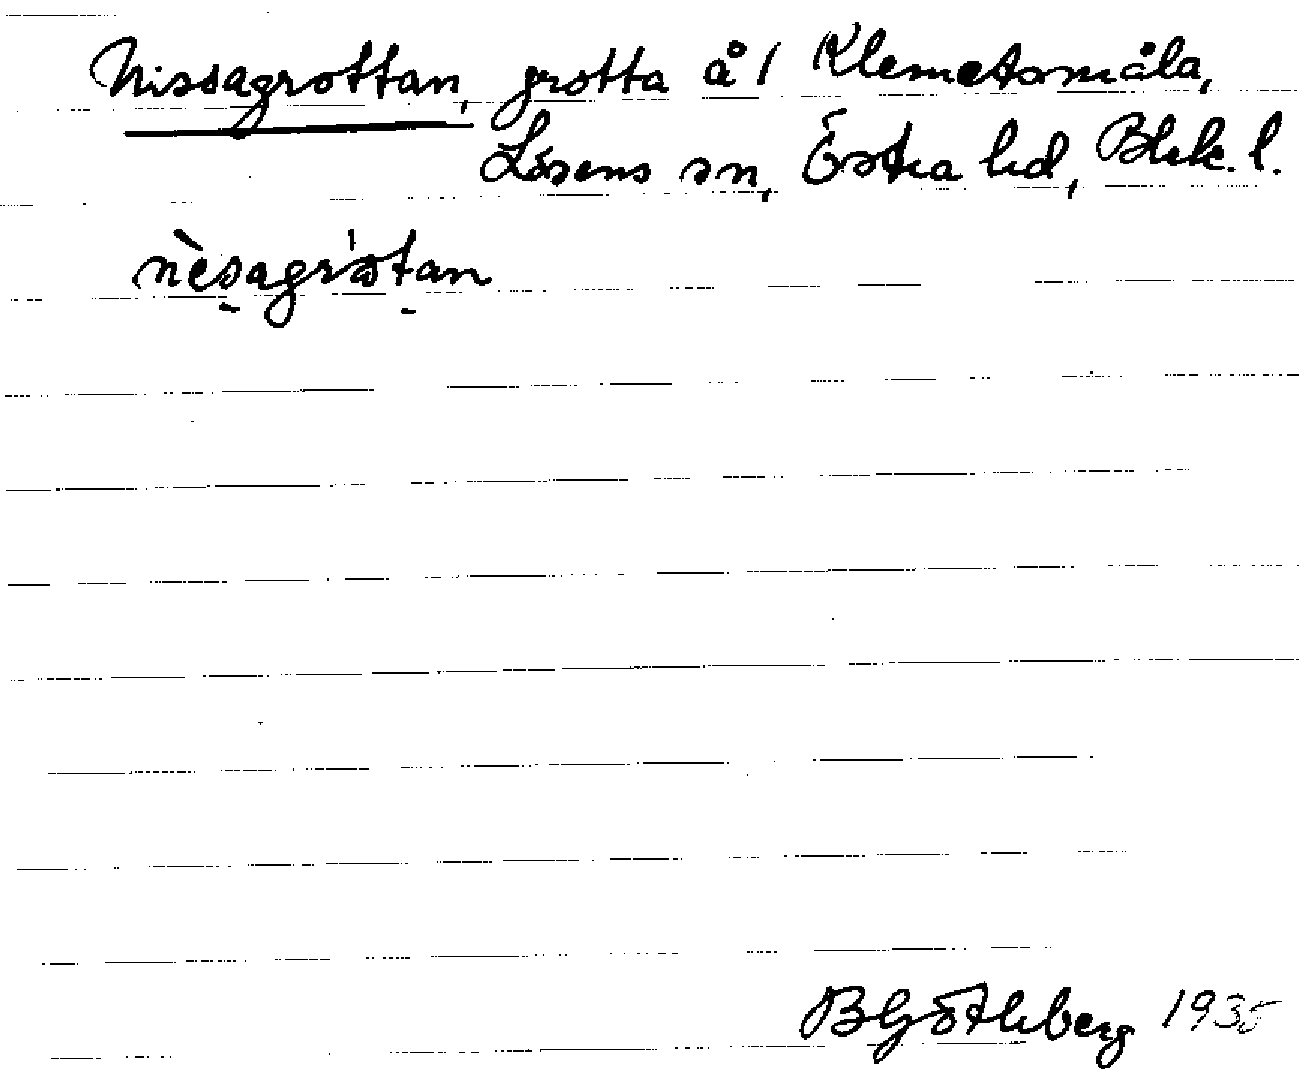 Nissagrottan, grotta å 1 Klemetsmåla,
Lösens sn, Östra hd, Blek. l.
nèsagròtan
BGöthberg 1935